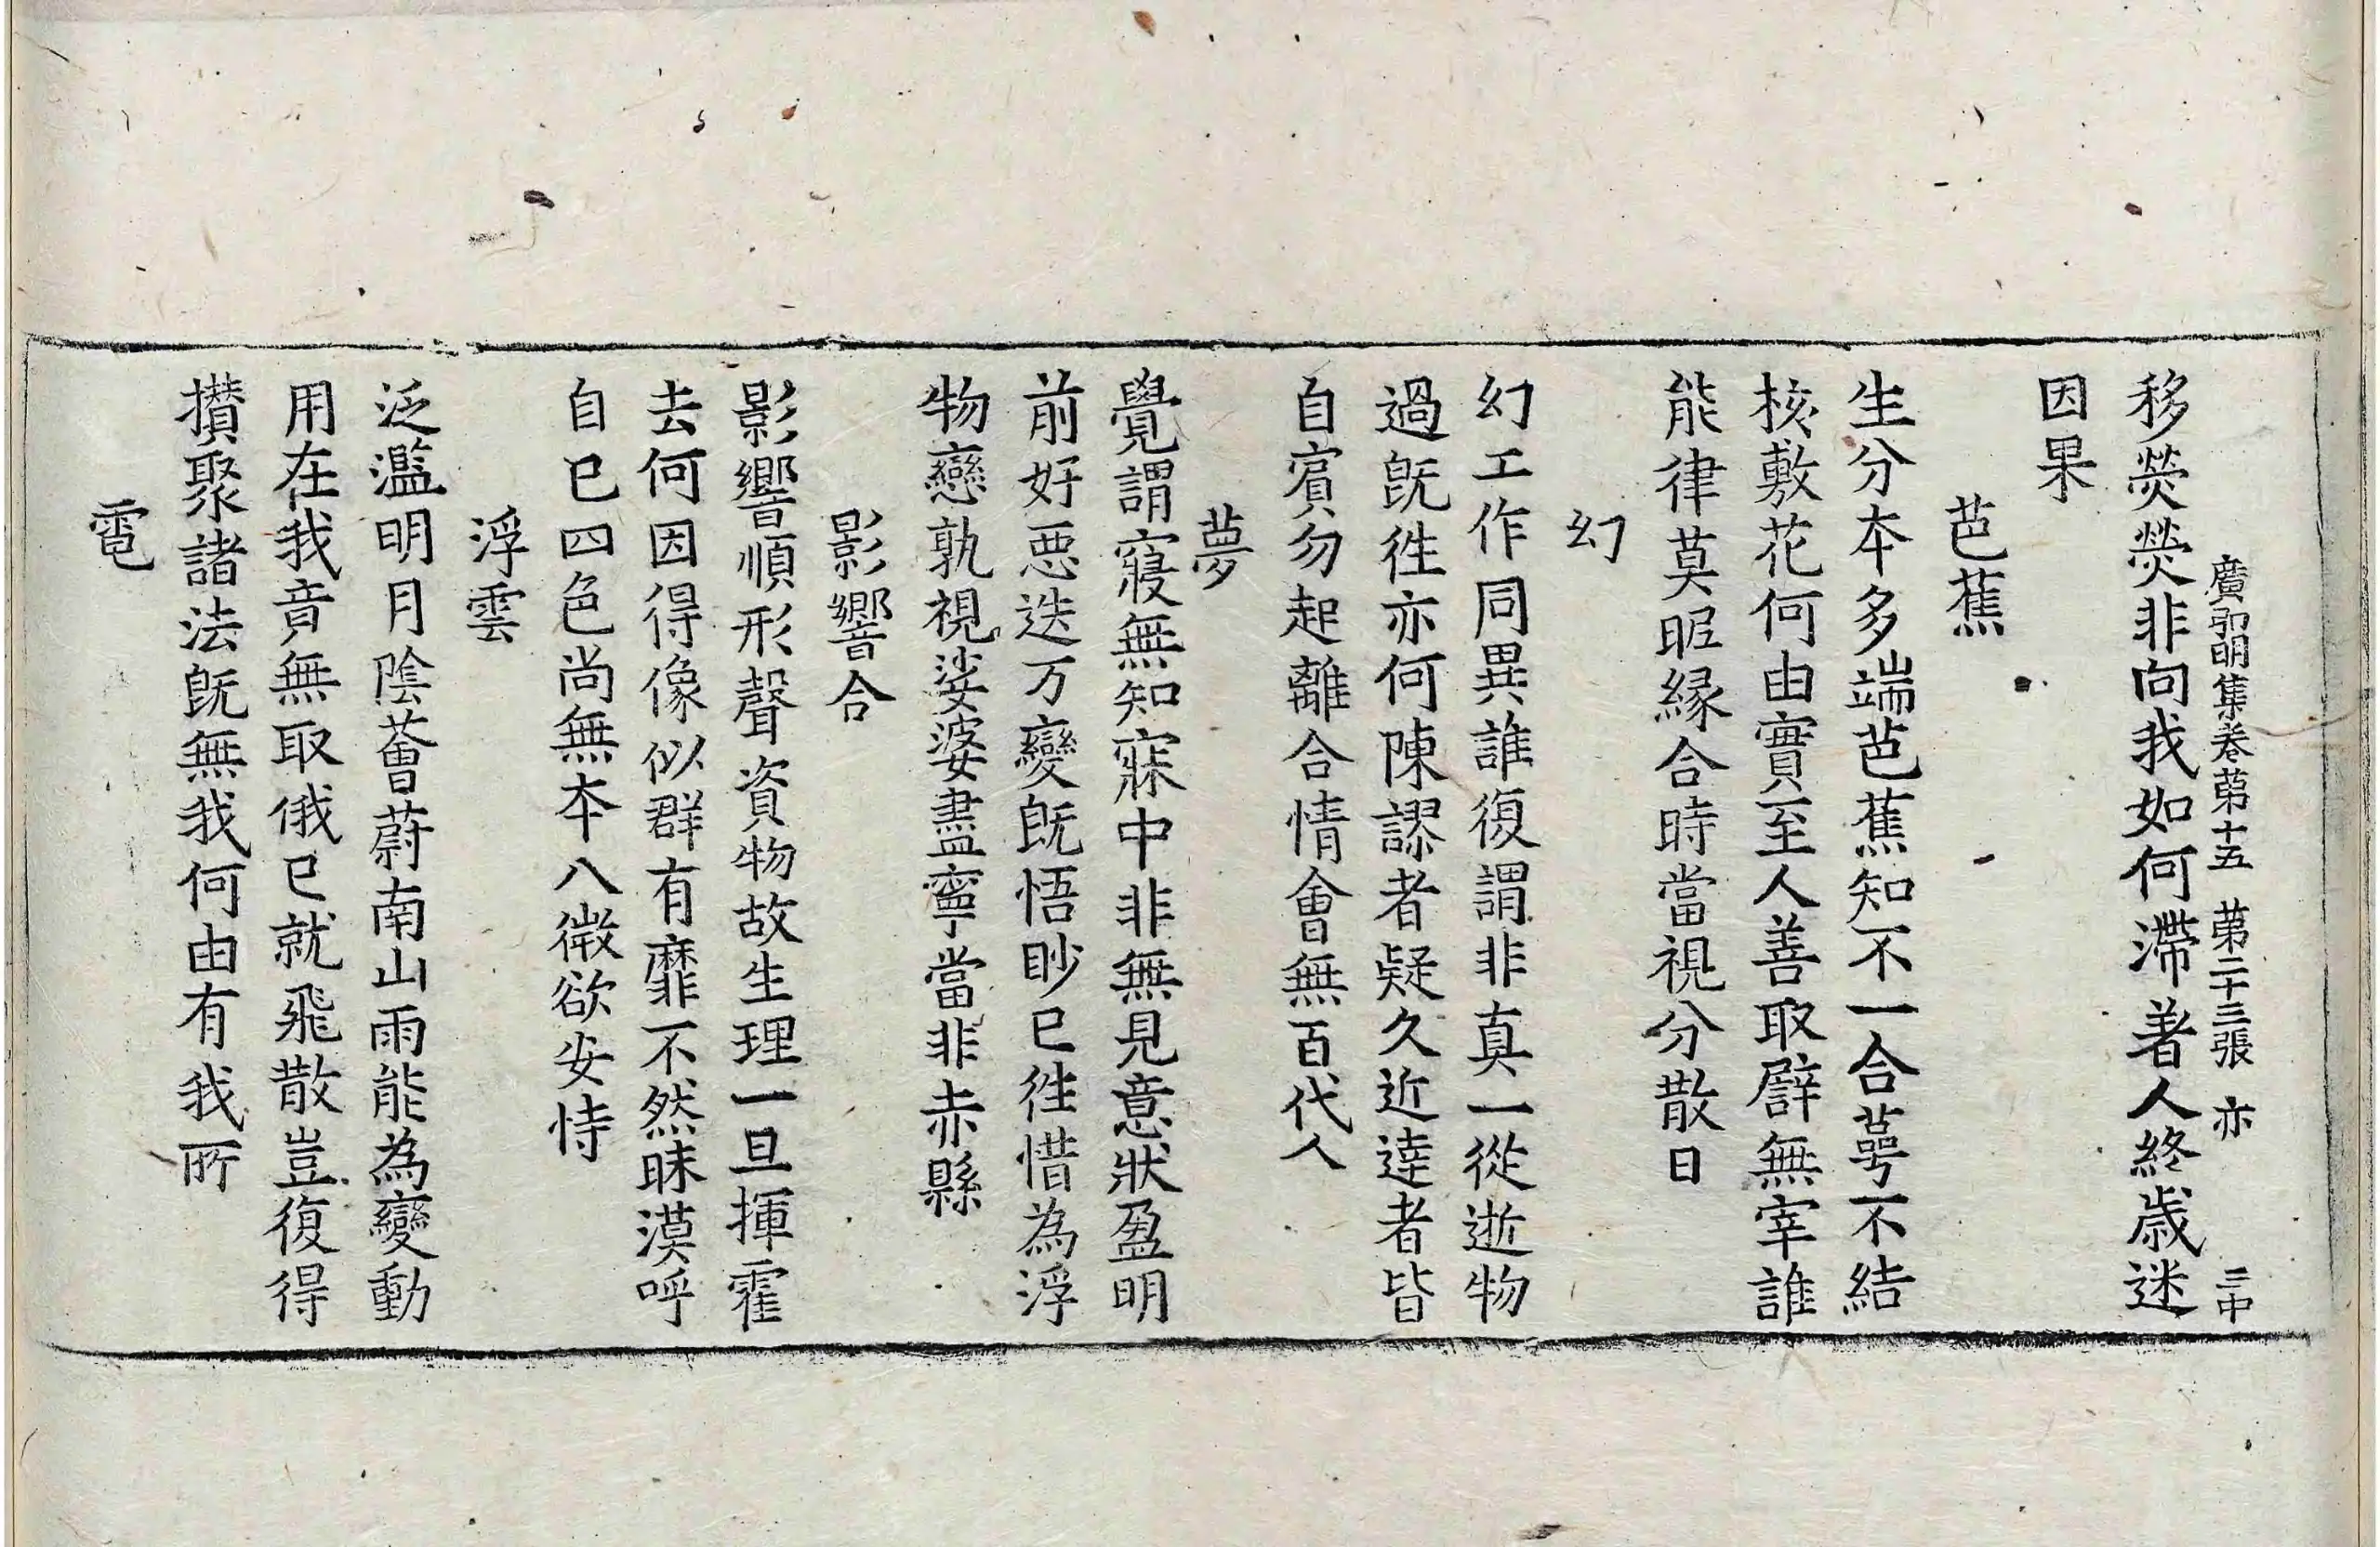 廣弘明集卷第十五　第二十三張　亦　三中
移熒熒非向我如何滯著人終歲迷
因果
芭蕉
生分本多端芭蕉知不一合萼不結
核敷花何由實至人善取譬無宰誰
能律莫昵緣合時當視分散日
幻
幻工作同異誰復謂非真一從逝物
過旣徃亦何陳謬者疑久近達者皆
自賓勿起離合情會無百代人
夢
覺謂寢無知寐中非無見意狀盈明
前好惡迭万變旣悟眇已徃惜為浮
物戀孰視娑婆盡寧當非赤縣
影響合
影響順形聲資物故生理一旦揮霍
去何因得像似群有靡不然昧漠呼
自已四色尚無本八微欲安恃
浮雲
泛濫明月陰薈蔚南山雨能為變動
用在我竟無取俄已就飛散豈復得
攢聚諸法旣無我何由有我所
電